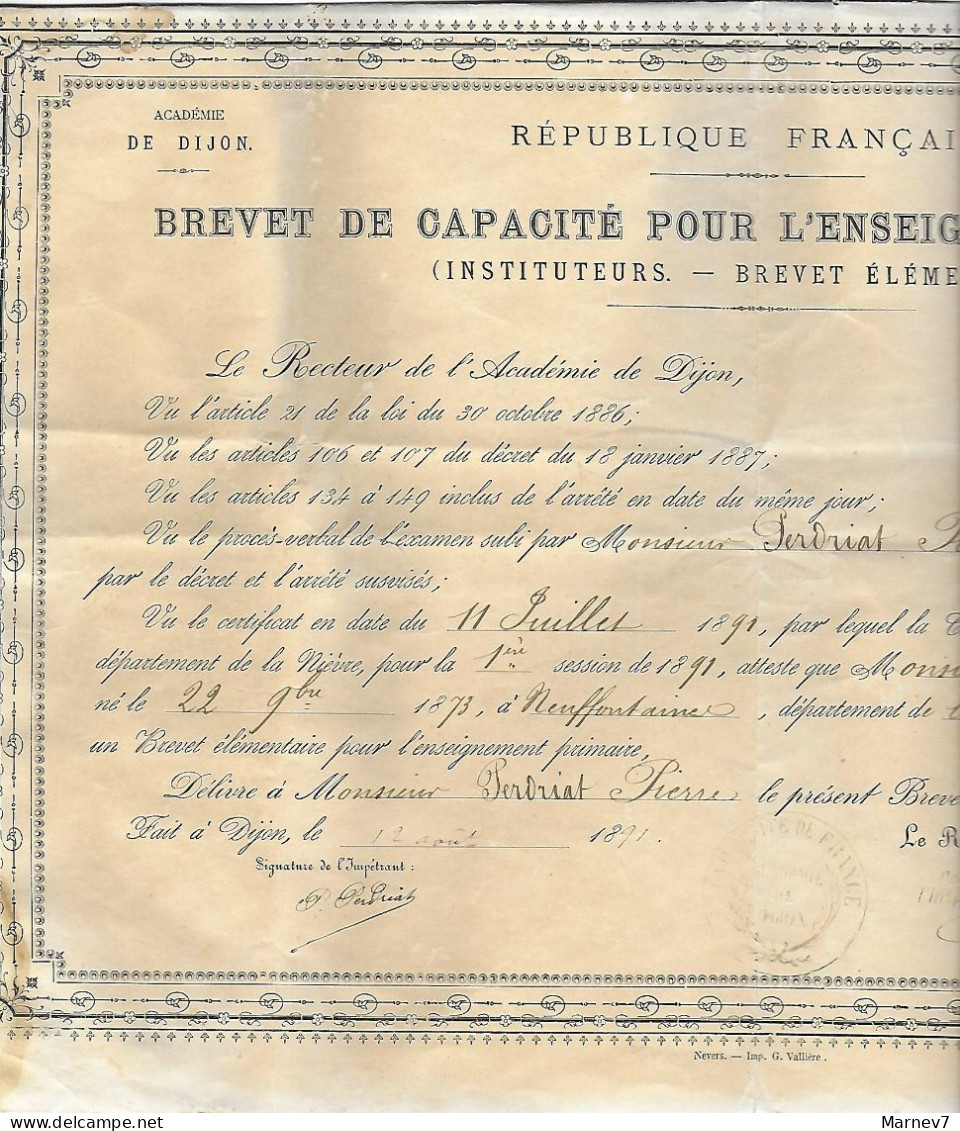 ACADÉMIE
DE DIJON.
RÉPUBLIQUE FRANÇAI
BREVET DE CAPACITÉ POUR L'ENSEIG
(INSTITUTEURS. — BREVET ÉLÉME
Le Recteur de l'Académie de Dijon,
Vu l'article 21 de la loi du 30 octobre 1886;
Vu les articles 106 et 107 du décret du 18 janvier 1887;
Vu les articles 134 à 149 inclus de l'arrêté en date du même jour;
Vu le procès-verbal de l'examen subi par Monsieur Perdriat Pi
par le décret et l'arrêté susvisés;
Vu le certificat en date du 11 Juillet 1891, par lequel la C
département de la Nièvre, pour la 1ère session de 1891, atteste que Monsi
né le 22 9bre 1873, à Neuffontaines, département de
un Brevet élémentaire pour l'enseignement primaire,
Délivre à Monsieur Perdriat Pierre le présent Breve
Fait à Dijon, le 12 août 1891. Le R
Signature de l'Impétrant :
P. Perdriat
DE FRANCE
DIJON
Nevers. — Imp. G. Vallière.
Marnev7